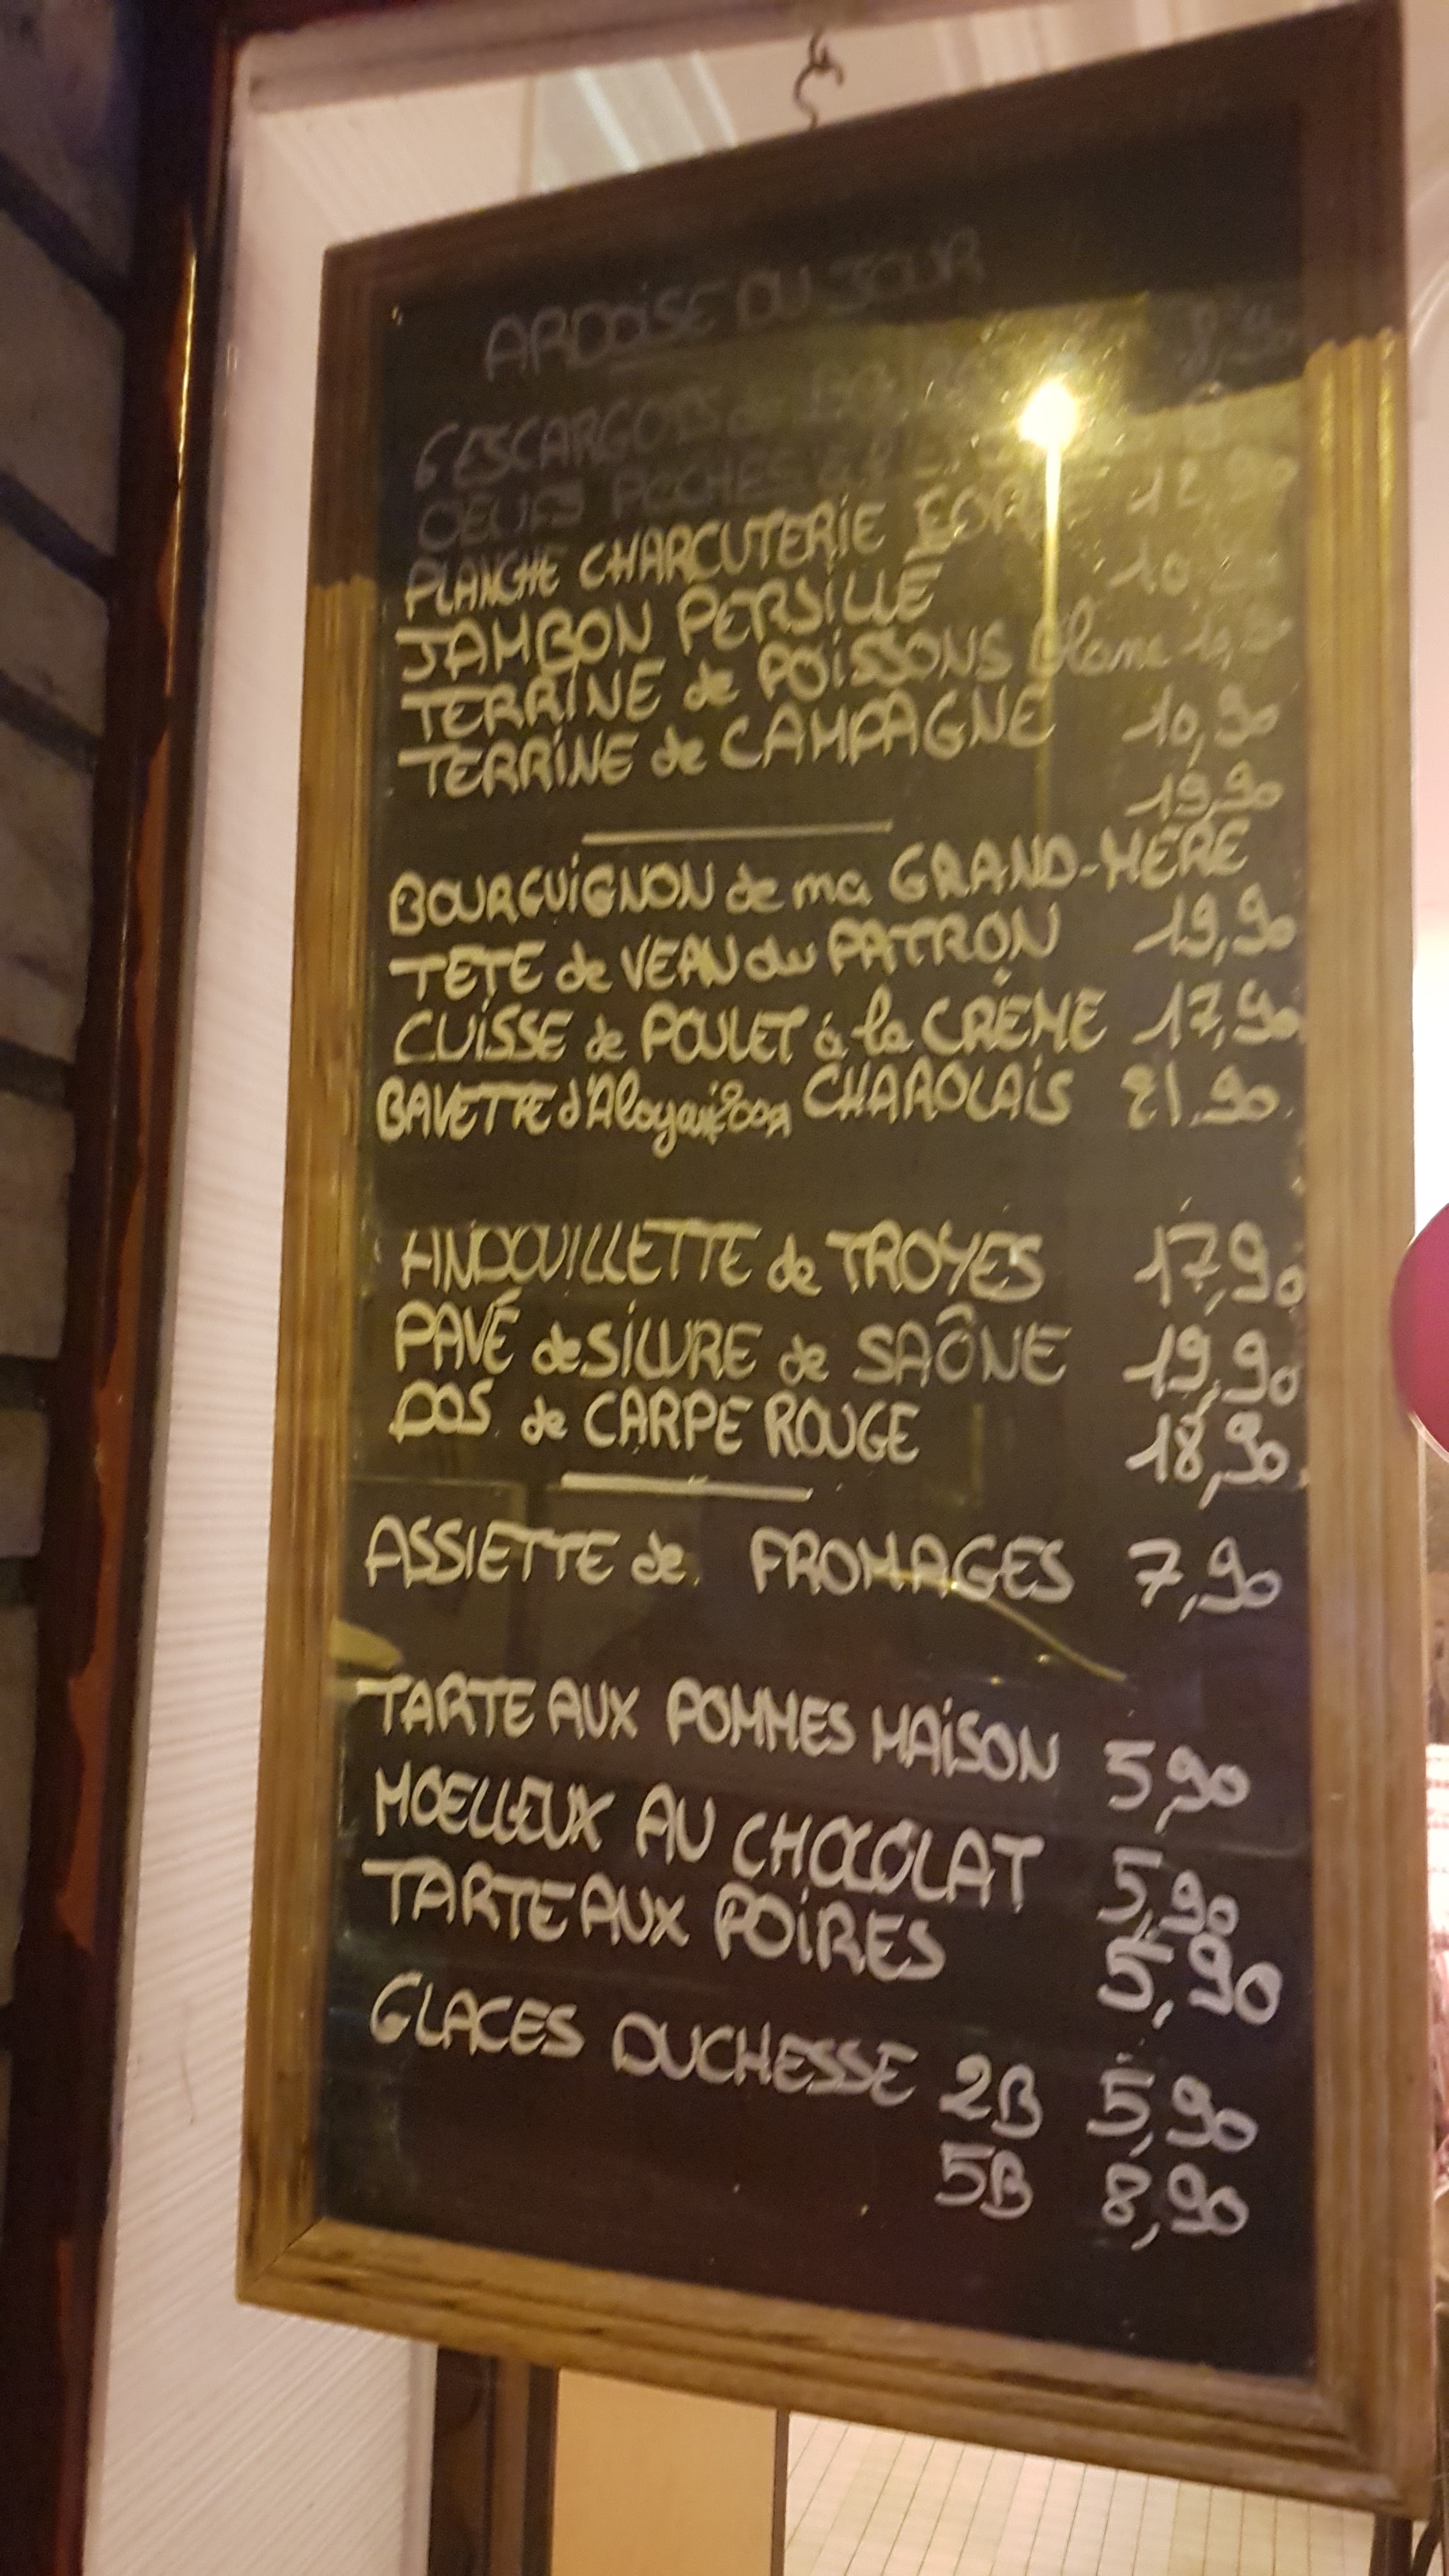 ARDOISE DU JOUR
6 ESCARGOTS de
OEUFS POCHES
PLANCHE CHARCUTERIE 12,90
JAMBON PERSILLÉ
TERRINE de POISSONS blanc
TERRINE de CAMPAGNE 10,90
19,90
BOURGUIGNON de ma GRAND-MÈRE
TETE de VEAU du PATRON 19,90
CUISSE de POULET à la CRÈME 17,90
BAVETTE d'Aloyau CHAROLAIS 21,90
ANDOUILLETTE de TROYES 17,90
PAVÉ de SILURE de SAÔNE 19,90
DOS de CARPE ROUGE 18,90
ASSIETTE de FROMAGES 7,90
TARTE AUX POMMES MAISON 5,90
MOELLEUX AU CHOCOLAT 5,90
TARTE AUX POIRES 5,90
GLACES DUCHESSE 2B 5,90
5B 8,90